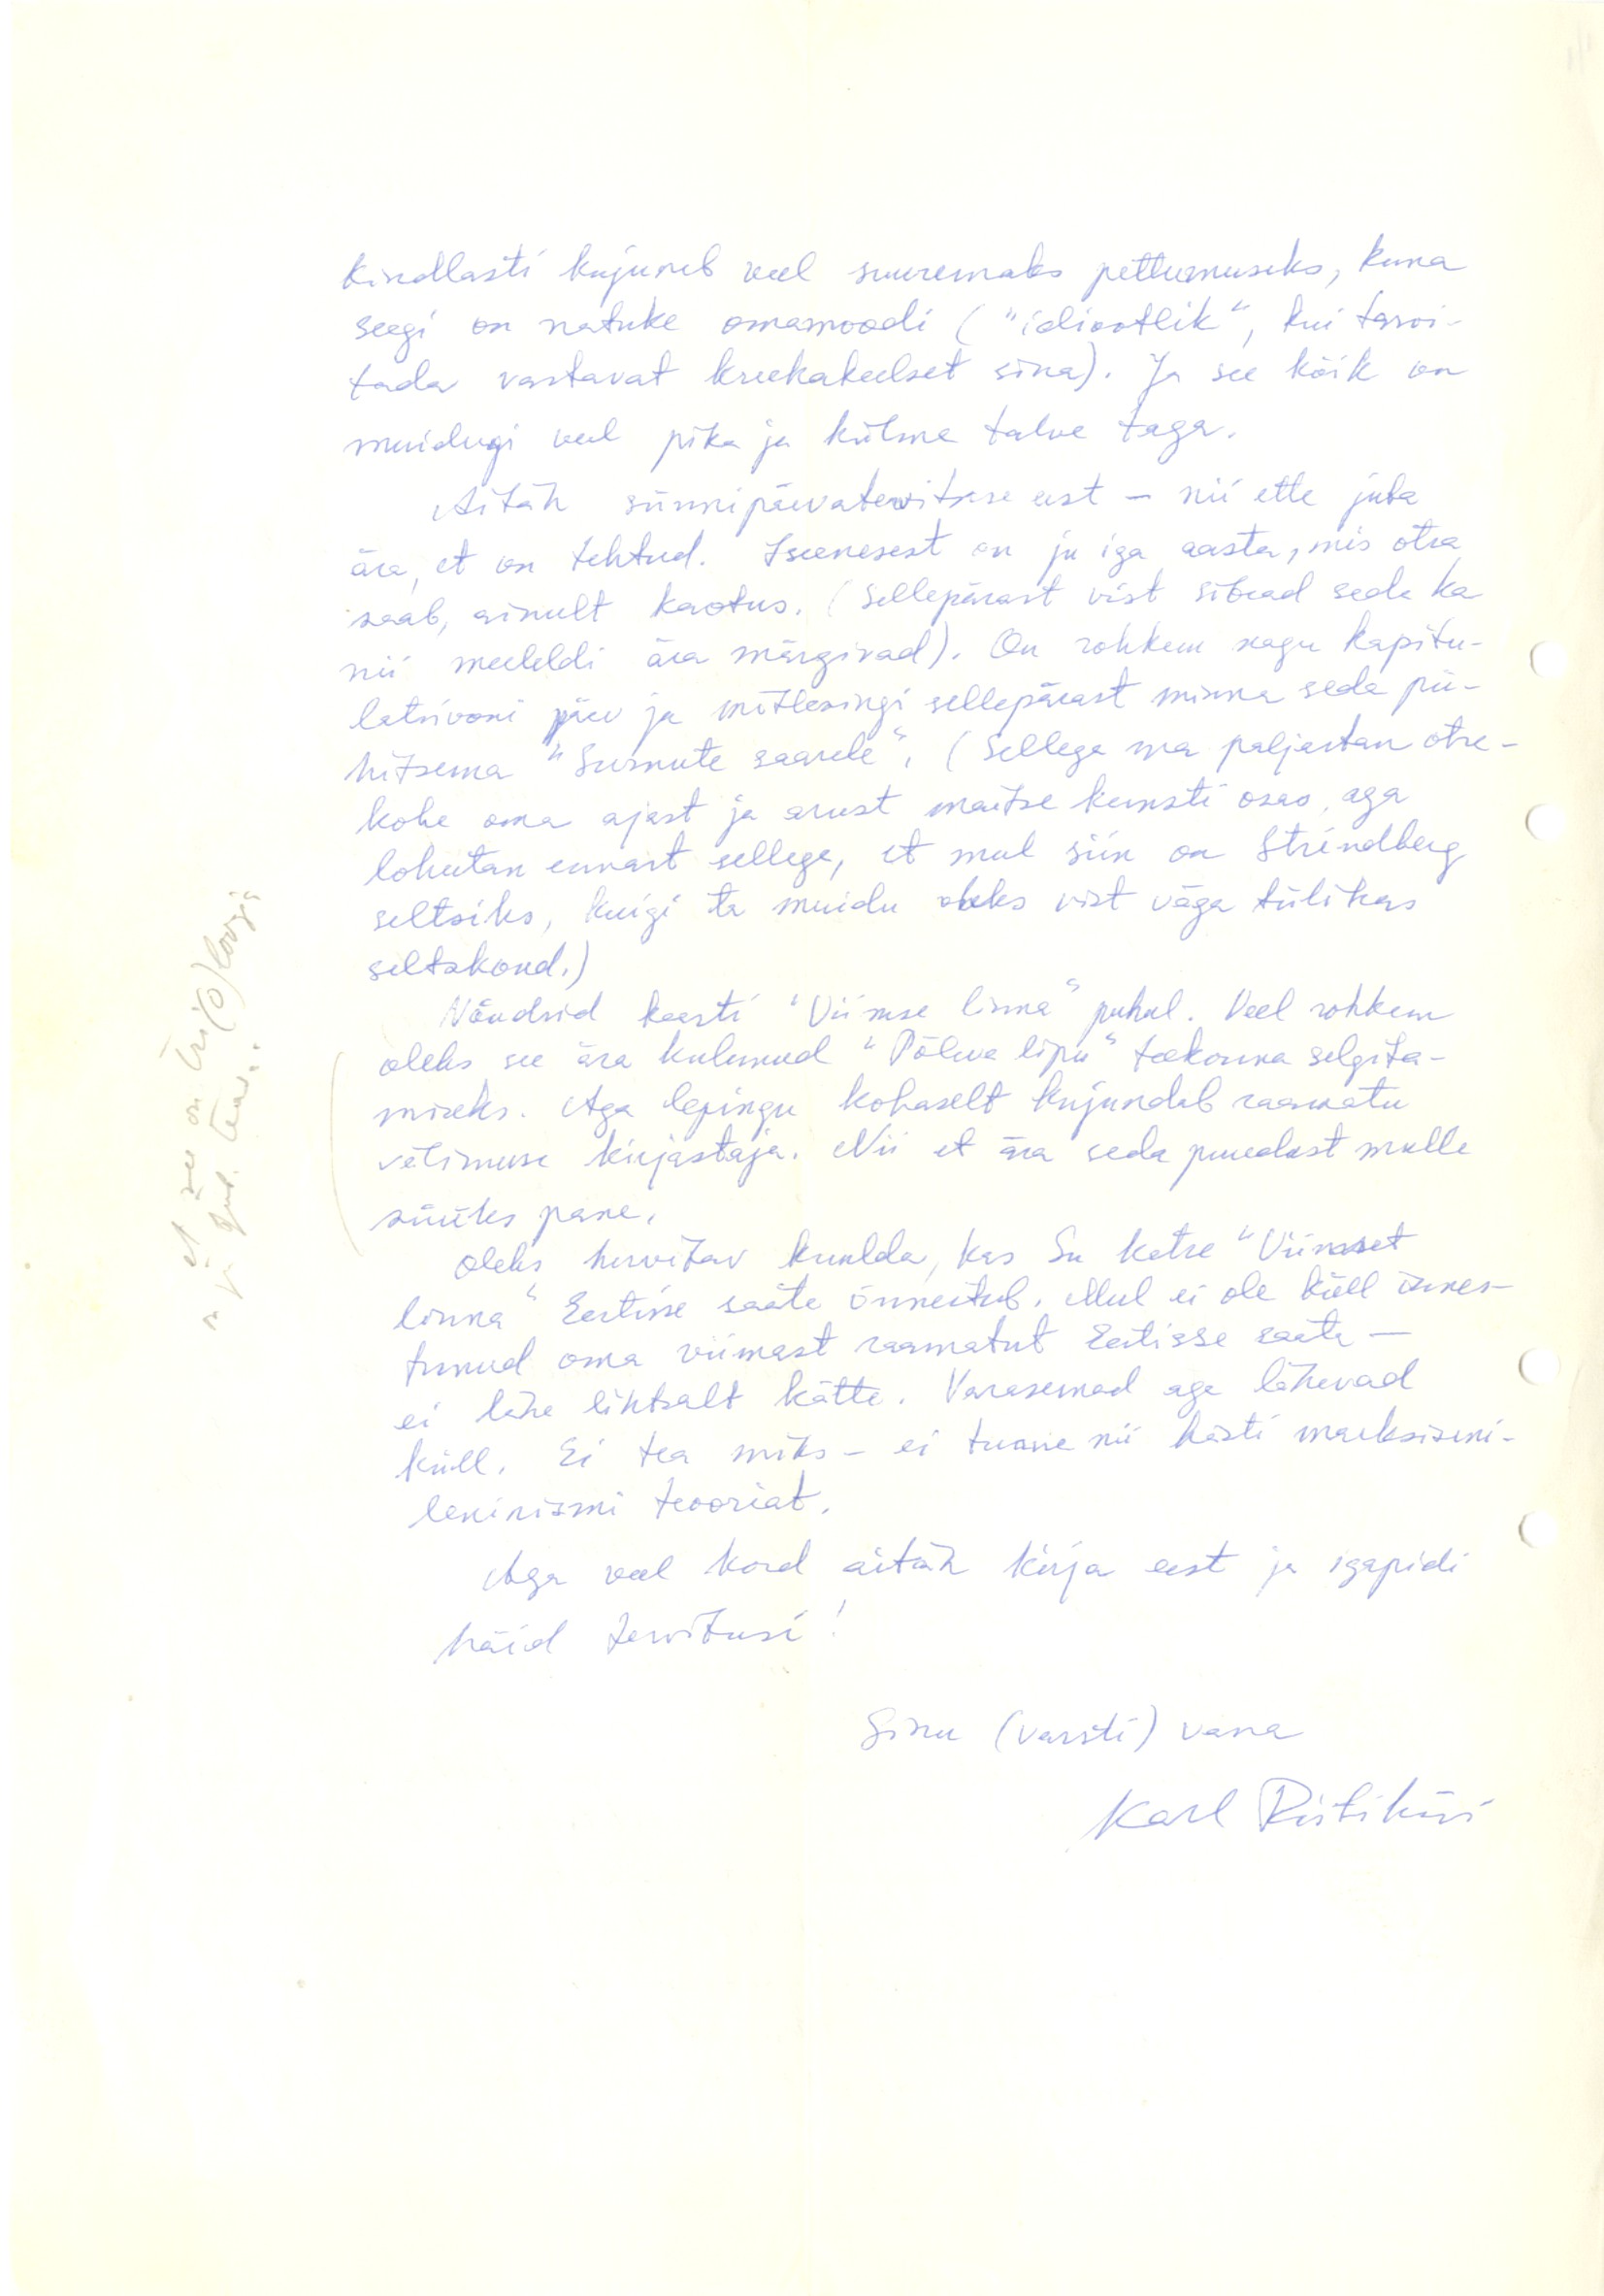 kindlasti kujuneb veel suuremaks pettumuseks, kuna
seegi on natuke omamoodi ("idiootlik", kui tarvi-
tada vastavat kreekakeelset sõna). Ja see kõik on
muidugi veel pika ja külma talve taga.
Aitäh sünnipäevatervituse eest – nii ette juba
ära, et on tehtud. Iseenesest on ju iga aasta, mis otsa
saab, ainult kaotus. (Sellepärast vist sõbrad seda ka
nii meeleldi ära märgivad). On rohkem nagu kapitu-
latsiooni päev ja mõtlesingi sellepärast minna seda pü-
hitsema "Surnute saarele". (Sellega ma paljastan otse-
kohe oma ajast ja arust maitse kunsti osas, aga
lohutan ennast sellega, et mul siin on Strindberg
seltsiks, kuigi ta muidu oleks vist väga tülikas
seltskond.)
Nõudsid kaarti "Viimse linna" puhul. Veel rohkem
oleks see ära kulunud "Põleva lipu" teekonna selgita-
miseks. Aga lepingu kohaselt kujundab raamatu
välimuse kirjastaja. Nii et ära seda puudust mulle
süüks pane.
Oleks huvitav kuulda, kas Su katse "Viimset
linna" Eestisse saata õnnestub. Mul ei ole küll õnnes-
tunud oma viimast raamatut Eestisse saata –
ei lähe lihtsalt kätte. Varasemad aga lähevad
küll. Ei tea miks – ei tunne nii hästi marksismi-
leninismi teooriat.
Aga veel kord aitäh kirja eest ja igapidi
häid tervitusi!
Sinu (varsti) vana
Karl Ristikivi
et see on tri(o)loogia